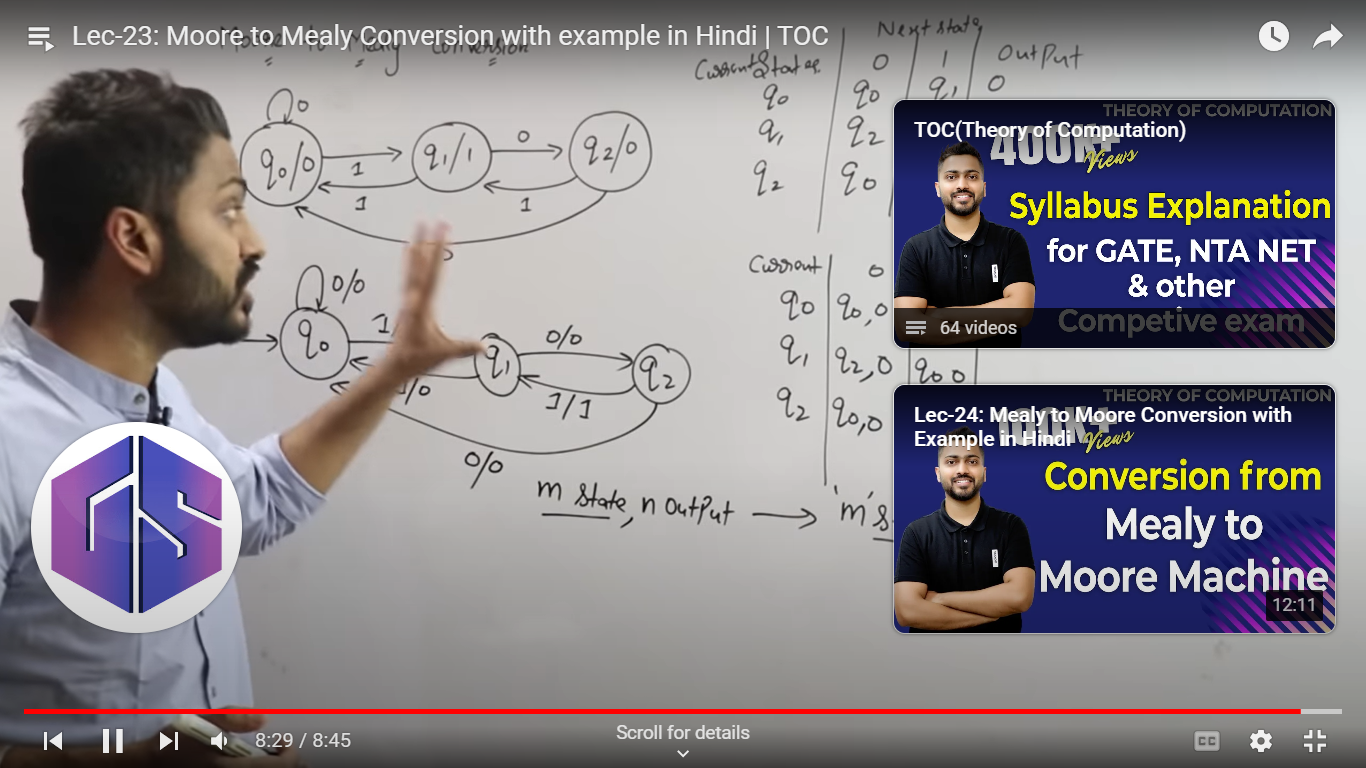 Lec-23: Moore to Mealy Conversion with example in Hindi | TOC
Moore to Mealy Conversion
0
q0/0
1
1
q1/1
0
1
q2/0
0/0
q0
q1
0/0
1/1
q2
0/0
m state, n output → 'm'
Next state
Current States 0 1 Output
q0 q0 q1 0
q1 q2
q2 q0
Current 0
q0 q0,0
q1 q2,0 q0 0
q2 q0,0
THEORY OF COMPUTATION
TOC(Theory of Computation)
400K+
Views
Syllabus Explanation
for GATE, NTA NET
& other
Competive exam
64 videos
THEORY OF COMPUTATION
Lec-24: Mealy to Moore Conversion with
Example in Hindi
Views
Conversion from
Mealy to
Moore Machine
12:11
GS
8:29 / 8:45
Scroll for details
CC